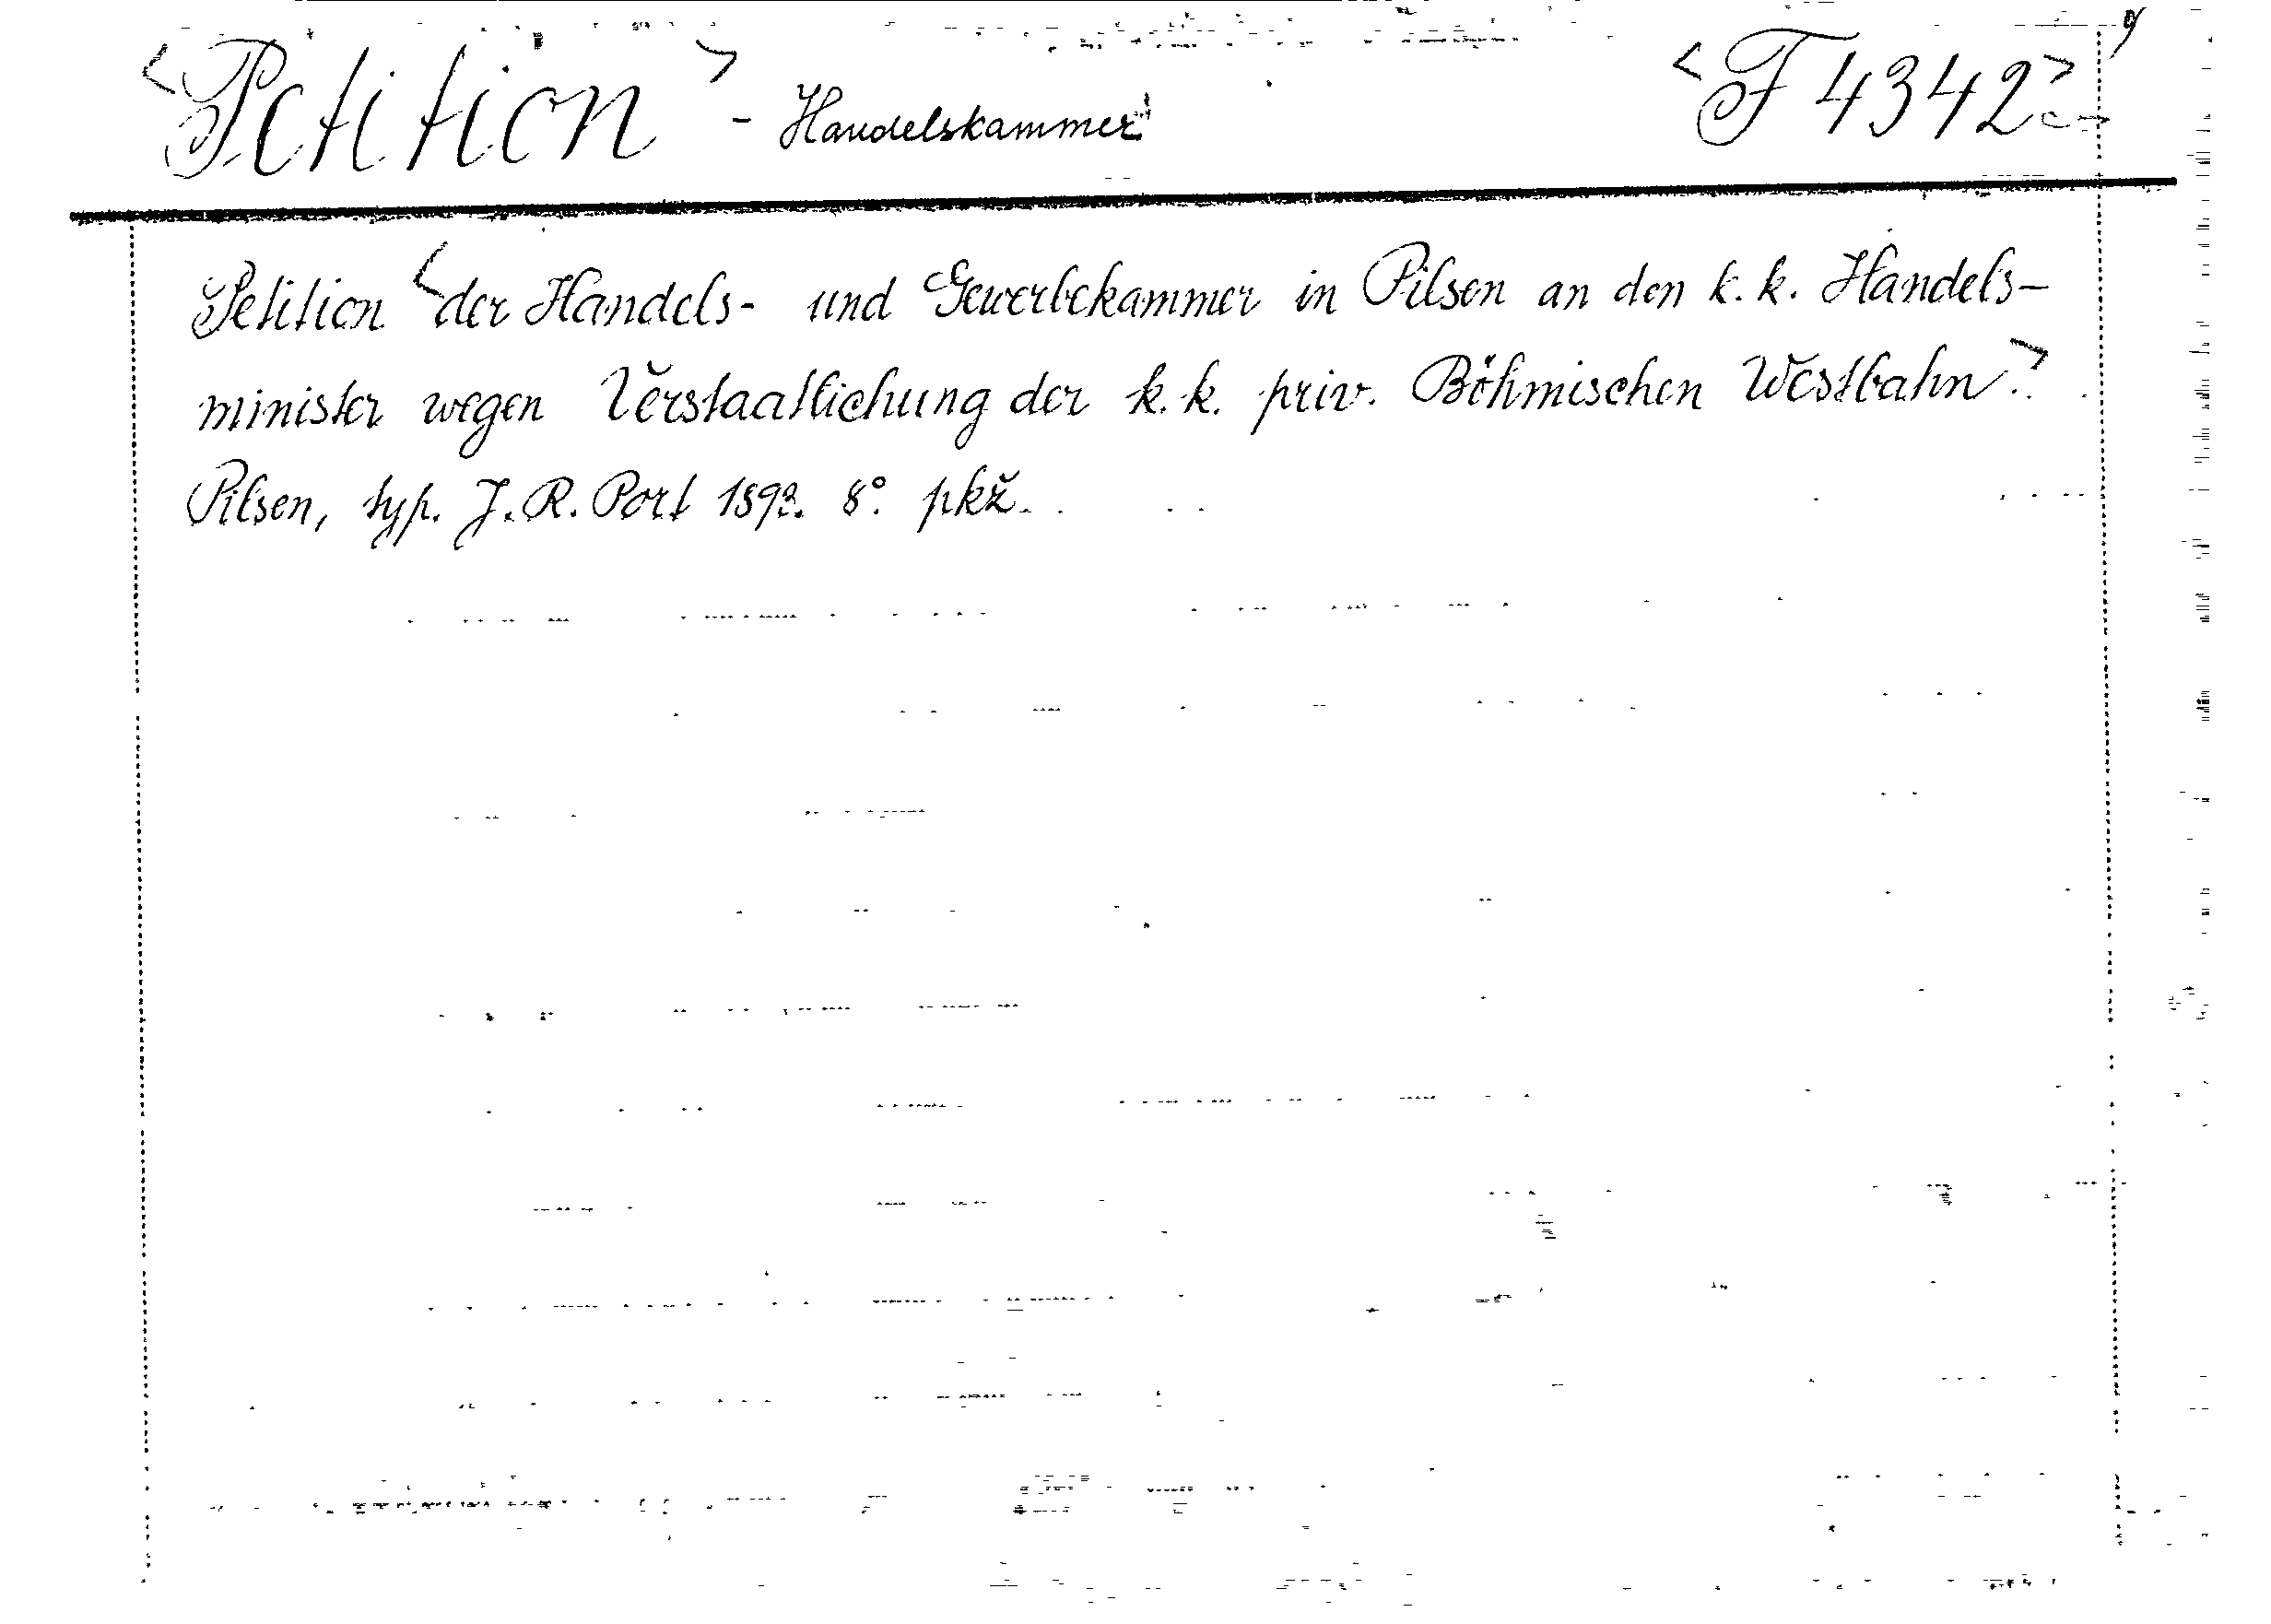 <Petition> - Handelskammer <F 4342>
Petition <der Handels- und Gewerbekammer in Pilsen an den k. k. Handels-
minister wegen Verstaatlichung der k. k. priv. Böhmischen Westbahn>.
Pilsen, typ. J. R. Port 1893. 8°. pkž.